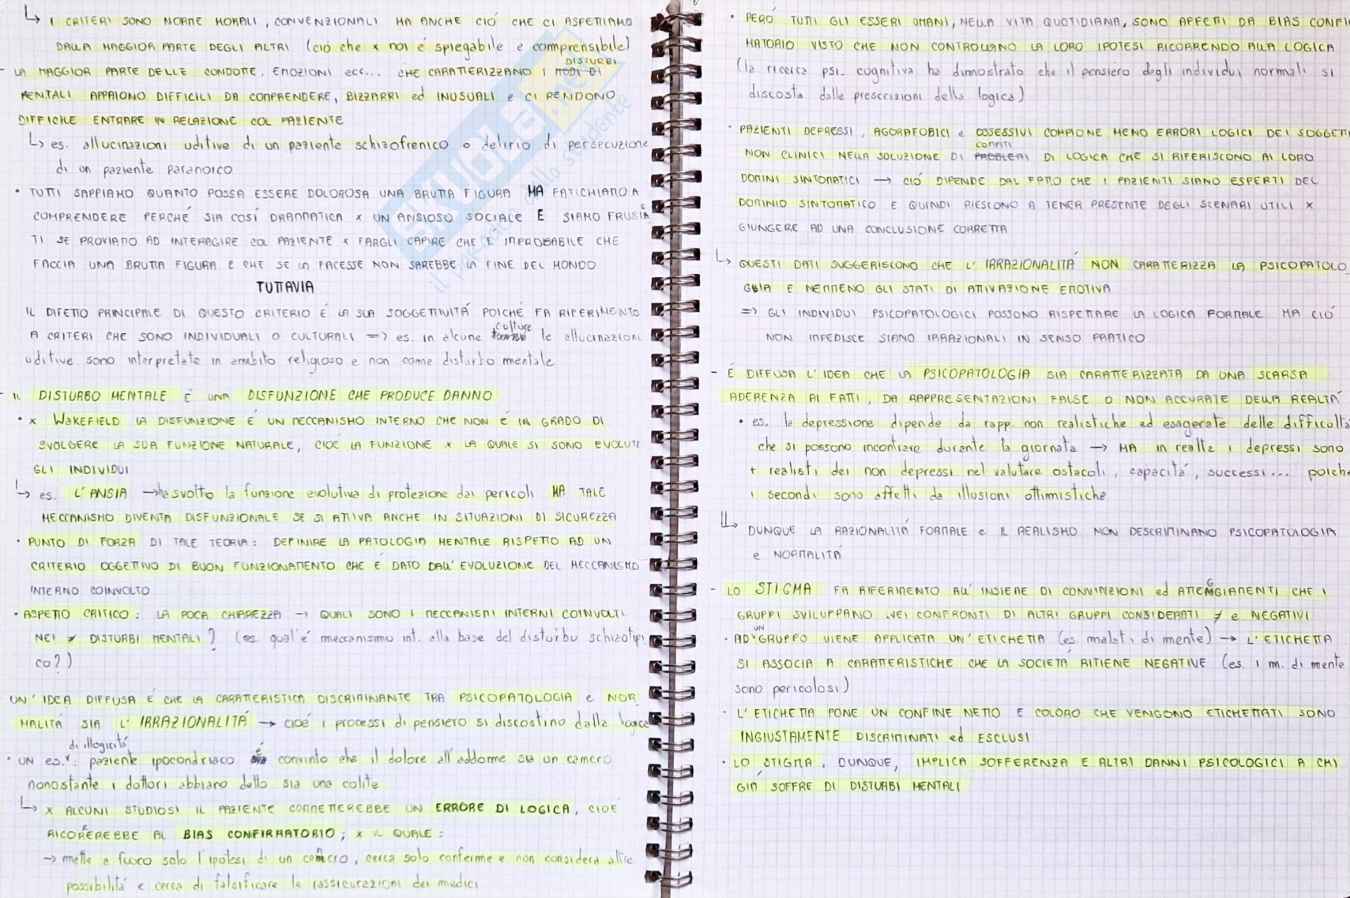 ↳ I CRITERI SONO NORME MORALI, CONVENZIONALI MA ANCHE CIÒ CHE CI ASPETTIAMO
DALLA MAGGIOR PARTE DEGLI ALTRI (ciò che x noi é spiegabile e comprensibile)
- LA MAGGIOR PARTE DELLE CONDOTTE, EMOZIONI ecc... CHE CARATTERIZZANO I DISTURBI
MENTALI APPAIONO DIFFICILI DA COMPRENDERE, BIZZARRI ed INUSUALI e CI RENDONO
DIFFICILE ENTRARE IN RELAZIONE COL PAZIENTE
↳ es. allucinazioni uditive di un paziente schizofrenico o delirio di persecuzione
di un paziente paranoico
• TUTTI SAPPIAMO QUANTO POSSA ESSERE DOLOROSA UNA BRUTTA FIGURA MA FATICHIAMO A
COMPRENDERE PERCHÉ SIA COSÍ DRAMMATICA x UN ANSIOSO SOCIALE E SIAMO FRUSTRA
TI SE PROVIAMO AD INTERAGIRE COL PAZIENTE x FARGLI CAPIRE CHE É IMPROBABILE CHE
FACCIA UNA BRUTTA FIGURA E CHE SE LA FACESSE NON SAREBBE LA FINE DEL MONDO
TUTTAVIA
IL DIFETTO PRINCIPALE DI QUESTO CRITERIO É LA SUA SOGGETTIVITÀ POICHÉ FA RIFERIMENTO
A CRITERI CHE SONO INDIVIDUALI O CULTURALI => es. in alcune culture le allucinazioni
uditive sono interpretate in ambito religioso e non come disturbo mentale
- IL DISTURBO MENTALE É UNA DISFUNZIONE CHE PRODUCE DANNO
• x WAKEFIELD LA DISFUNZIONE É UN MECCANISMO INTERNO CHE NON É IN GRADO DI
SVOLGERE LA SUA FUNZIONE NATURALE, CIOÉ LA FUNZIONE x LA QUALE SI SONO EVOLUTI
GLI INDIVIDUI
↳ es. L'ANSIA → ha svolto la funzione evolutiva di protezione dai pericoli MA TALE
MECCANISMO DIVENTA DISFUNZIONALE SE SI ATTIVA ANCHE IN SITUAZIONI DI SICUREZZA
• PUNTO DI FORZA DI TALE TEORIA: DEFINIRE LA PATOLOGIA MENTALE RISPETTO AD UN
CRITERIO OGGETTIVO DI BUON FUNZIONAMENTO CHE É DATO DALL'EVOLUZIONE DEL MECCANISMO
INTERNO COINVOLTO
• ASPETTO CRITICO: LA POCA CHIAREZZA → QUALI SONO I MECCANISMI INTERNI COINVOLTI
NEI ≠ DISTURBI MENTALI? (es. qual'é meccanismo int. alla base del disturbo schizotipi
co?)
UN'IDEA DIFFUSA É CHE LA CARATTERISTICA DISCRIMINANTE TRA PSICOPATOLOGIA e NOR
MALITÀ SIA L'IRRAZIONALITÀ → cioé i processi di pensiero si discostino dalla logica
• UN es. di illogicità: paziente ipocondriaco é convinto che il dolore all'addome sia un cancro
nonostante i dottori abbiano detto sia una colite
↳ x ALCUNI STUDIOSI IL PAZIENTE COMMETTEREBBE UN ERRORE DI LOGICA, CIOÉ
RICORREREBBE AL BIAS CONFIRMATORIO; x IL QUALE:
→ mette a fuoco solo l'ipotesi di un cancro, cerca solo conferme e non considera altre
possibilità e cerca di falsificare le rassicurazioni dei medici
• PERÒ TUTTI GLI ESSERI UMANI, NELLA VITA QUOTIDIANA, SONO AFFETTI DA BIAS CONFIR
MATORIO VISTO CHE NON CONTROLLANO LA LORO IPOTESI RICORRENDO ALLA LOGICA
(la ricerca psi. cognitiva ha dimostrato che il pensiero degli individui normali si
discosta dalle prescrizioni della logica)
• PAZIENTI DEPRESSI, AGORAFOBICI e OSSESSIVI COMPIONO MENO ERRORI LOGICI DEI SOGGETTI
NON CLINICI NELLA SOLUZIONE DI COMPITI DI LOGICA CHE SI RIFERISCONO AI LORO
DOMINI SINTOMATICI → CIÒ DIPENDE DAL FATTO CHE I PAZIENTI SIANO ESPERTI DEL
DOMINIO SINTOMATICO E QUINDI RIESCONO A TENER PRESENTE DEGLI SCENARI UTILI x
GIUNGERE AD UNA CONCLUSIONE CORRETTA
↳ QUESTI DATI SUGGERISCONO CHE L'IRRAZIONALITÀ NON CARATTERIZZA LA PSICOPATOLO
GIA E NEMMENO GLI STATI DI ATTIVAZIONE EMOTIVA
=> GLI INDIVIDUI PSICOPATOLOGICI POSSONO RISPETTARE LA LOGICA FORMALE MA CIÒ
NON IMPEDISCE SIANO IRRAZIONALI IN SENSO PRATICO
- É DIFFUSA L'IDEA CHE LA PSICOPATOLOGIA SIA CARATTERIZZATA DA UNA SCARSA
ADERENZA AI FATTI, DA RAPPRESENTAZIONI FALSE O NON ACCURATE DELLA REALTÀ
• es. la depressione dipende da rapp. non realistiche ed esagerate delle difficoltà
che si possono incontrare durante la giornata → MA in realtà i depressi sono
+ realisti dei non depressi nel valutare ostacoli, capacità, successi... poiché
i secondi sono affetti da illusioni ottimistiche
↳ DUNQUE LA RAZIONALITÀ FORMALE e IL REALISMO NON DISCRIMINANO PSICOPATOLOGIA
e NORMALITÀ
- LO STIGMA FA RIFERIMENTO ALL'INSIEME DI CONVINZIONI ed ATTEGGIAMENTI CHE I
GRUPPI SVILUPPANO NEI CONFRONTI DI ALTRI GRUPPI CONSIDERATI ≠ e NEGATIVI
• AD UN GRUPPO VIENE APPLICATA UN'ETICHETTA (es. malati di mente) → L'ETICHETTA
SI ASSOCIA A CARATTERISTICHE CHE LA SOCIETÀ RITIENE NEGATIVE (es. i m. di mente
sono pericolosi)
• L'ETICHETTA PONE UN CONFINE NETTO E COLORO CHE VENGONO ETICHETTATI SONO
INGIUSTAMENTE DISCRIMINATI ed ESCLUSI
• LO STIGMA, DUNQUE, IMPLICA SOFFERENZA E ALTRI DANNI PSICOLOGICI A CHI
GIÀ SOFFRE DI DISTURBI MENTALI